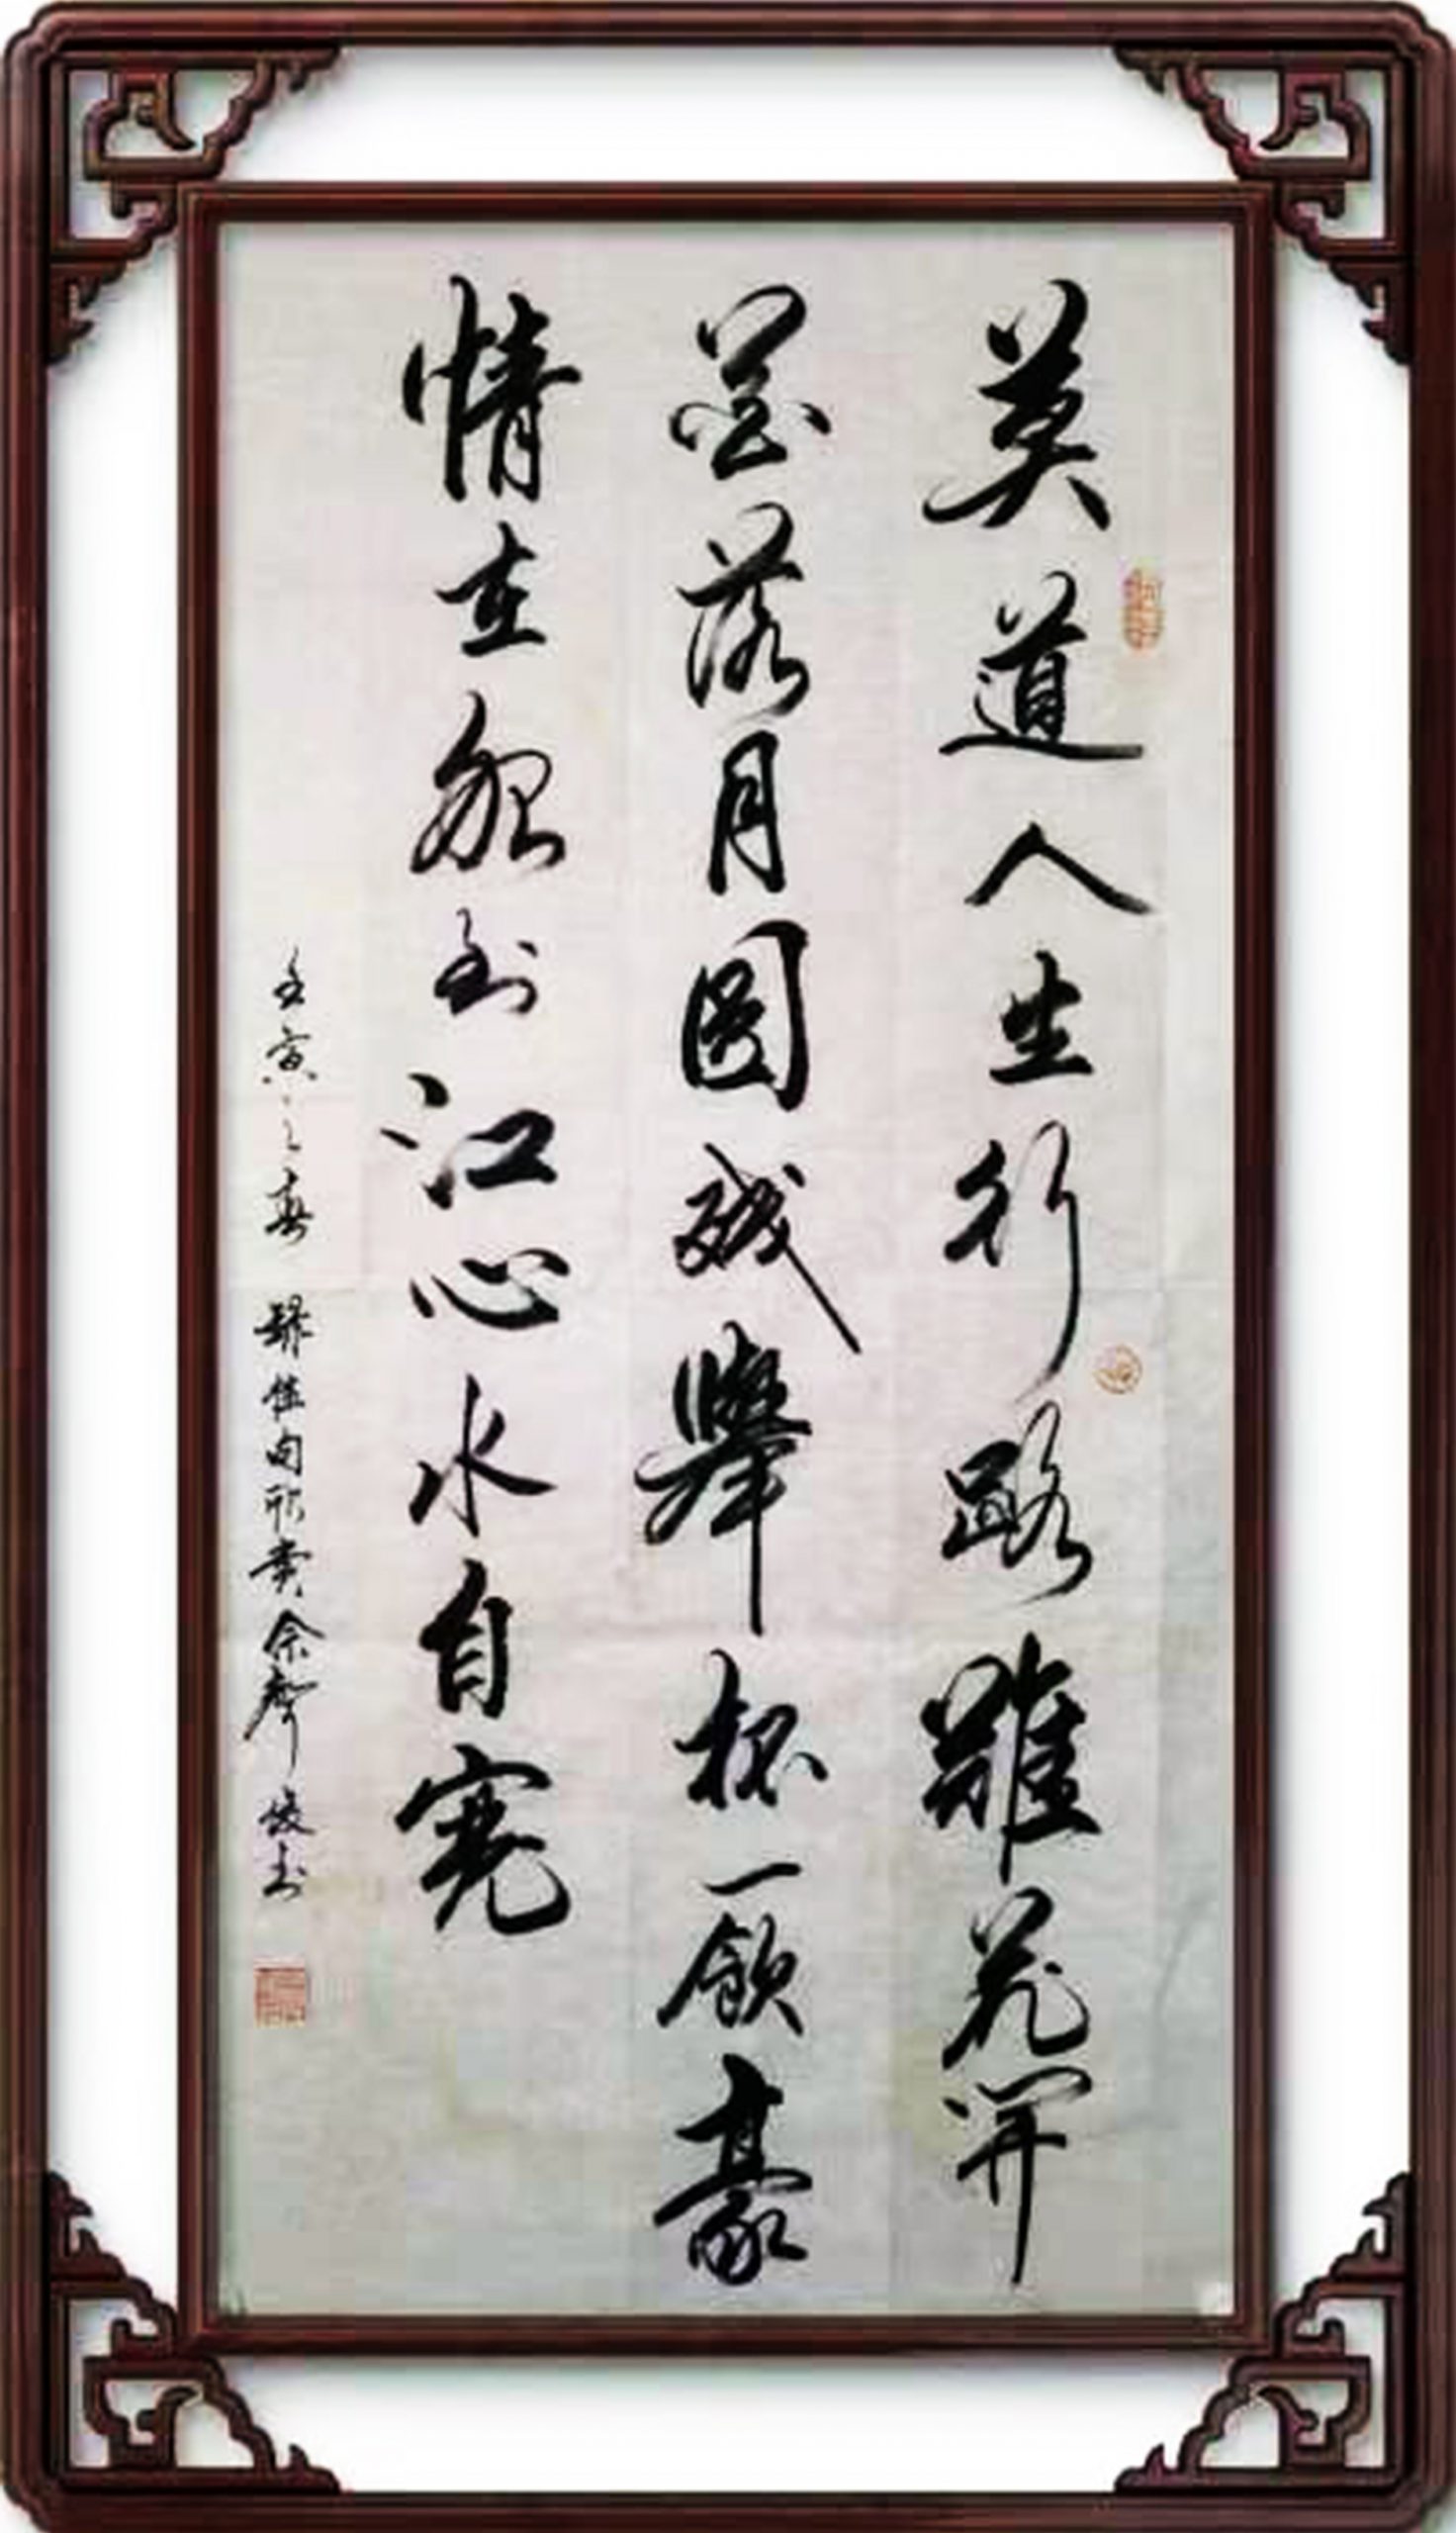 莫道人生行路難花開
花落月圓殘舉杯一飲豪
情在船到江心水自寬
壬寅之春 録佳句欣賞余聲書